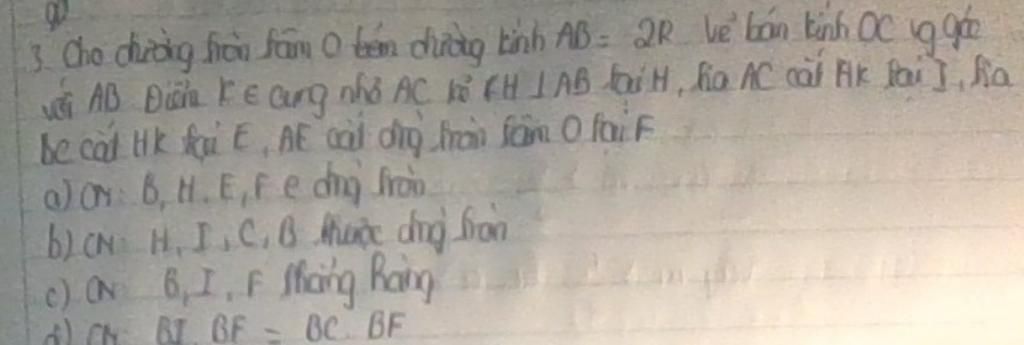 a)
3. Cho đường tròn tâm O bán đường kính AB = 2R Vẽ bán kính OC vg góc
với AB Điểm K ∈ cung nhỏ AC kẻ KH ⊥ AB tại H, tia AC cắt HK tại I, tia
BC cắt HK tại E, AE cắt đng tròn tâm O tại F
a) CM: B, H, E, F ∈ đng tròn
b) CM: H, I, C, B thuộc đng tròn
c) CM B, I, F thẳng hàng
d) CM BI. BF = BC. BF